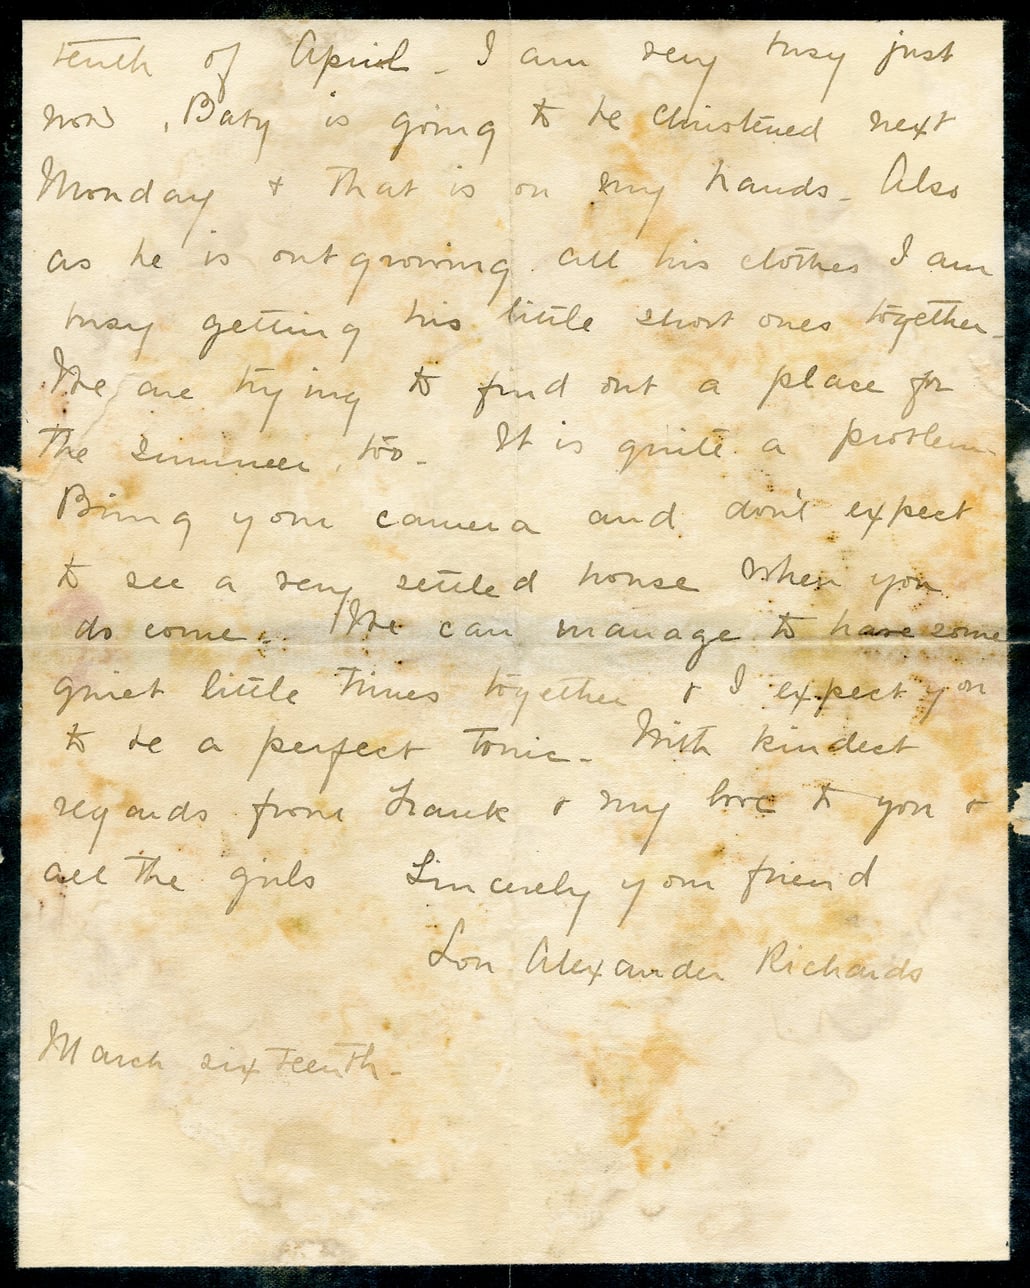 tenth of April - I am very busy just
now, Baby is going to be christened next
Monday & that is on my hands - Also
as he is outgrowing all his clothes I am
busy getting his little short ones together -
We are trying to find out a place for
the summer, too - It is quite a problem -
Bring your camera and don't expect
to see a very settled house when you
do come. We can manage to have some
quiet little times together & I expect you
to be a perfect tonic - With kindest
regards from Frank & my love to you &
all the girls Sincerely your friend
Lou Alexander Richards
March sixteenth -